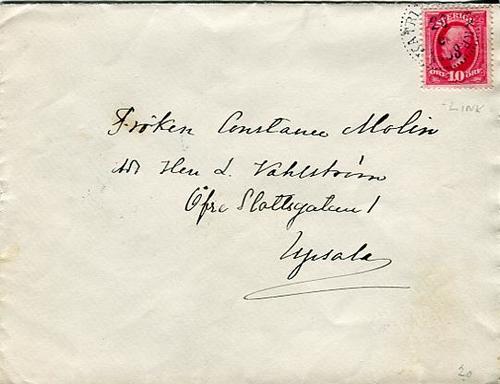 SVERIGE
ÖRE 10 ÖRE
LINK
Fröken Constance Molin
Herr L. Vahlström
Öfre Slottsgatan 1
Upsala
20